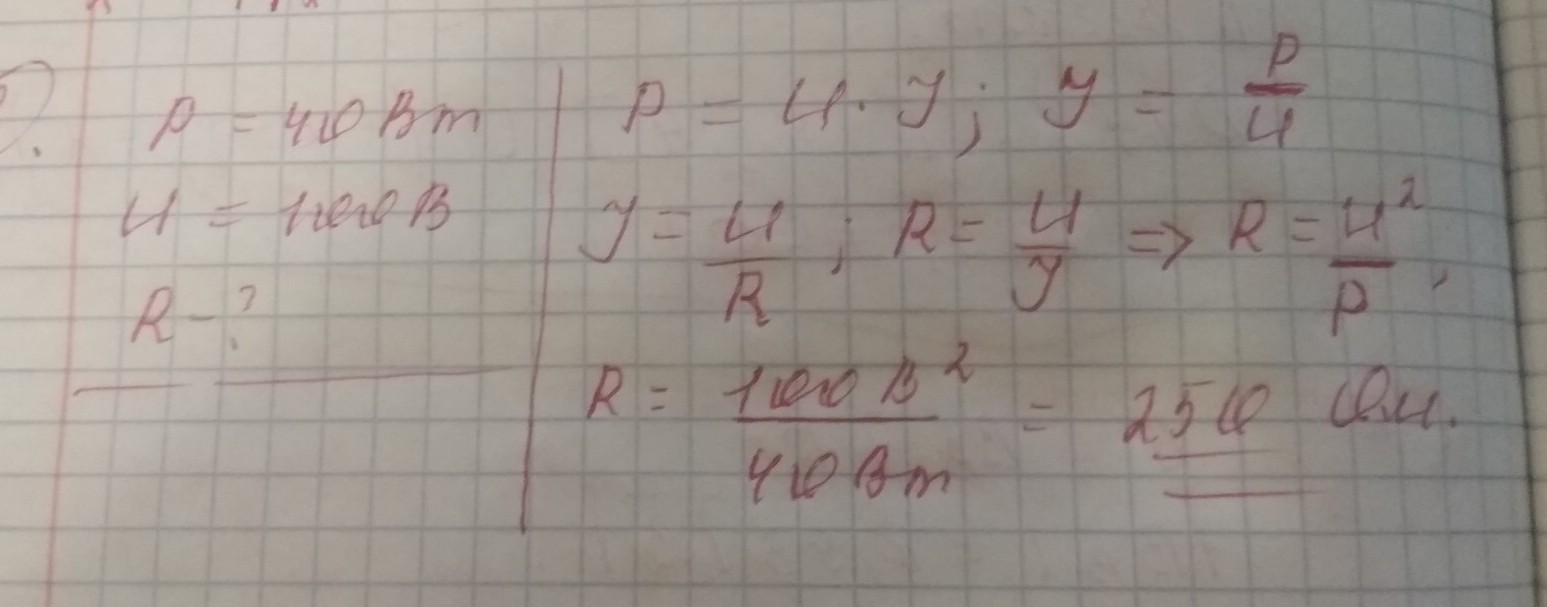 P = 40 Вт
U = 100 В
R - ?
P = U · J; J = P/U
J = U/R; R = U/J => R = U²/P,
R = 100 В²/40 Вт = 250 Ом.